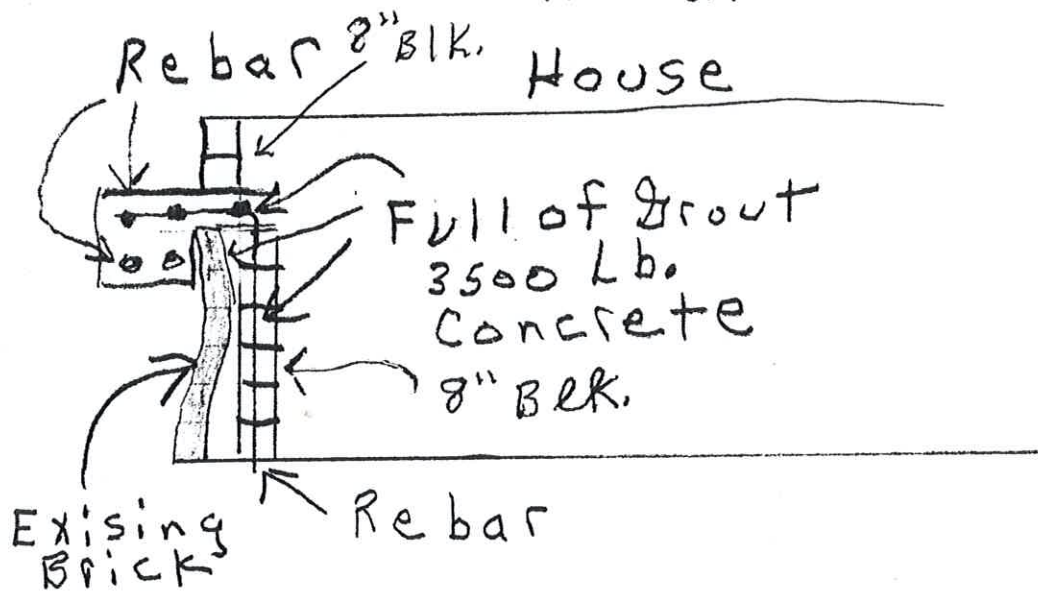 Rebar
8" Blk.
House
Full of Grout
3500 Lb.
Concrete
8" Blk.
Exising
Brick
Rebar